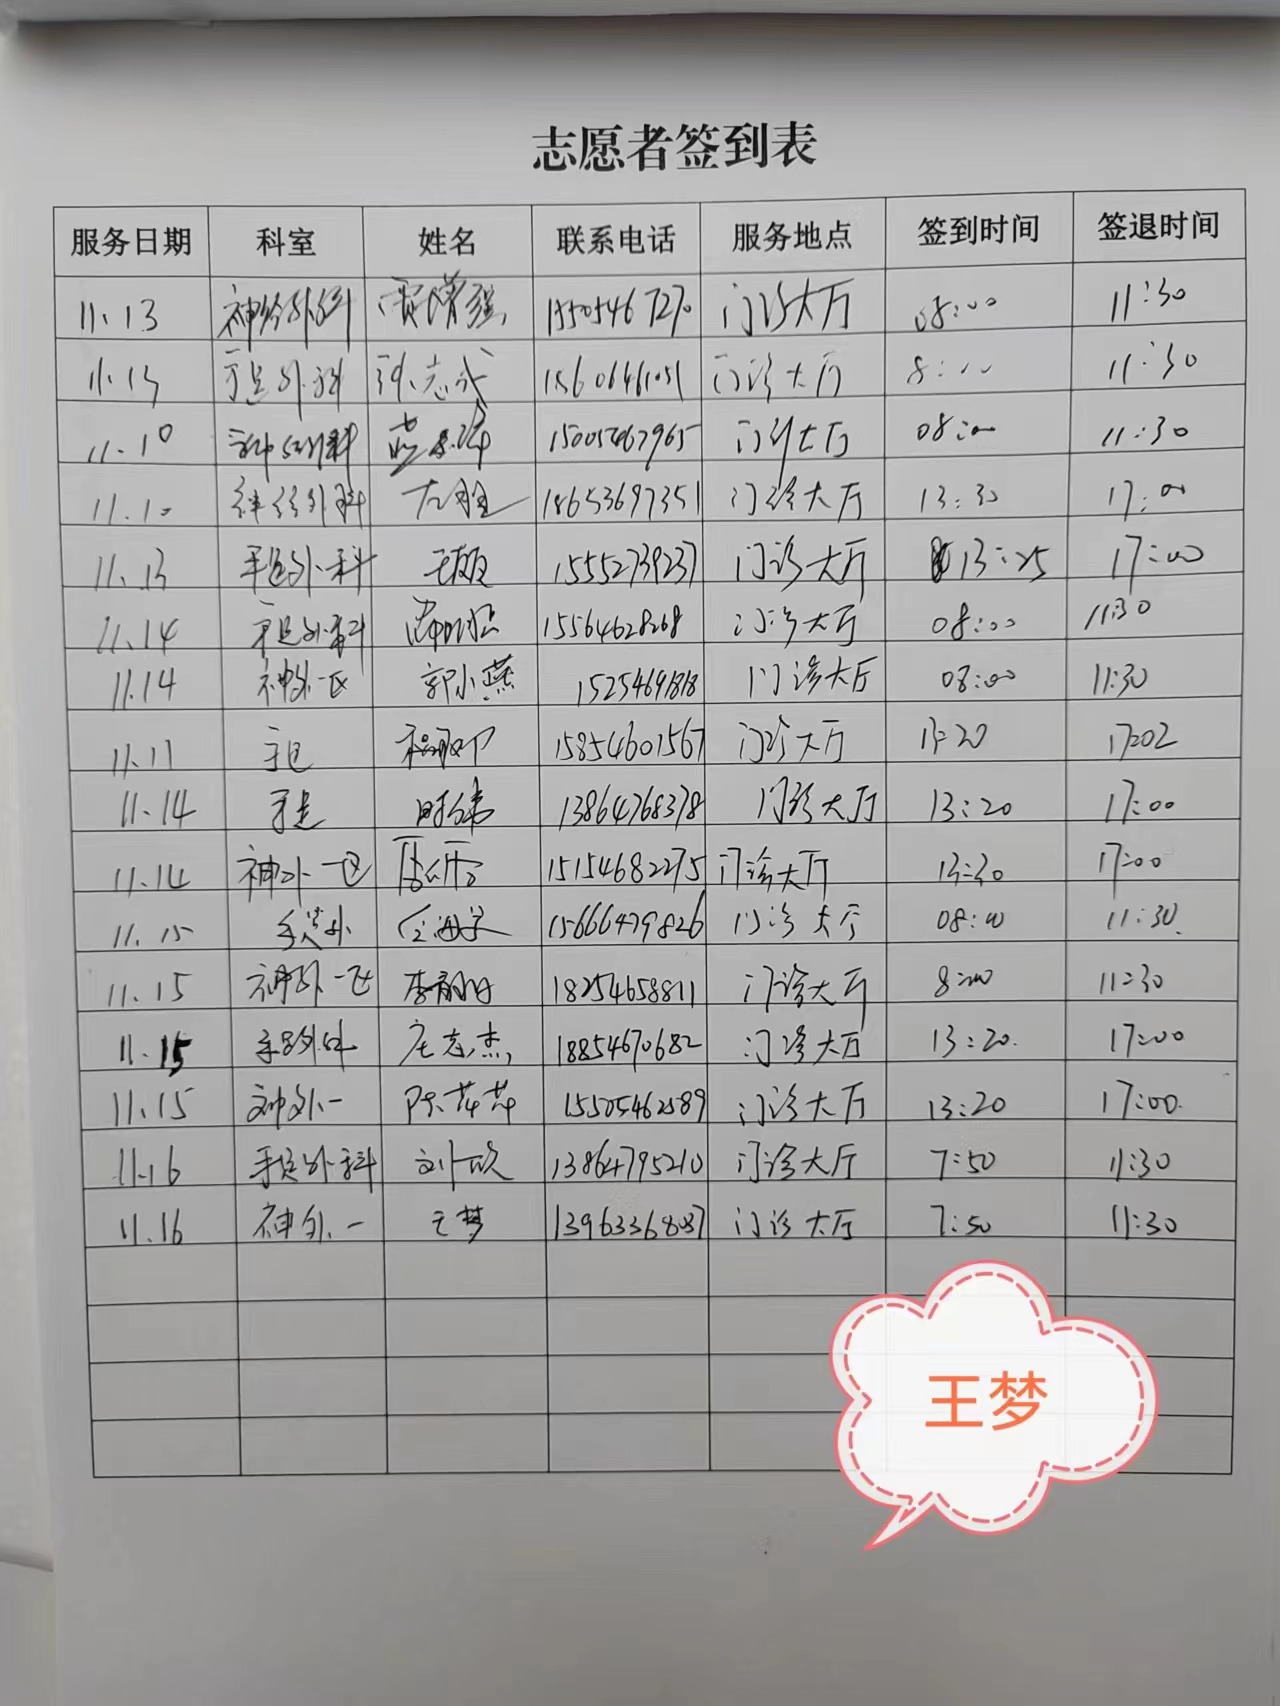 志愿者签到表
服务日期 科室 姓名 联系电话 服务地点 签到时间 签退时间
11.13 神经外科 门诊大厅 08:00 11:30
11.13 手足外科 15606461051 门诊大厅 8:00 11:30
11.10 神经外科 门诊大厅 08:00 11:30
11.10 神经外科 18653697351 门诊大厅 13:30 17:00
11.13 手足外科 15552739237 门诊大厅 13:25 17:00
11.14 手足外科 15564628268 门诊大厅 08:00 11:30
11.14 神外一区 郭小燕 15254691818 门诊大厅 08:00 11:30
11.11 手足 15854601567 门诊大厅 17:02
11.14 手足 时伟 13864768378 门诊大厅 13:20 17:00
11.14 神外一区 15154682275 门诊大厅 13:30 17:00
11.15 手足外 15666479826 门诊大厅 08:00 11:30
11.15 神外一区 18254658811 门诊大厅 8:00 11:30
11.15 手足外科 庄志杰 18854670682 门诊大厅 13:20 17:00
11.15 神外一 陈芹芹 15505462589 门诊大厅 13:20 17:00
11.16 手足外科 刘欣 13864795210 门诊大厅 7:50 11:30
11.16 神外一 王梦 13963368087 门诊大厅 7:50 11:30
王梦